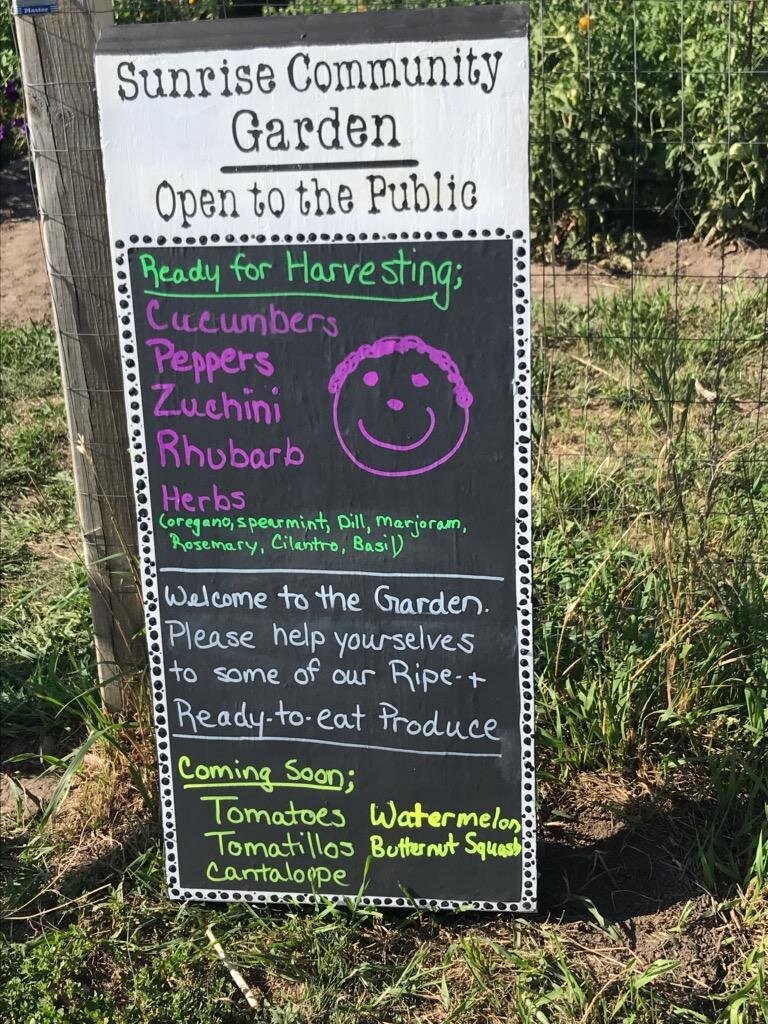 Plaster
Sunrise Community
Garden
Open to the Public
Ready for Harvesting;
Cucumbers
Peppers
Zuchini
Rhubarb
Herbs
(oregano, spearmint, Dill, marjoram,
Rosemary, Cilantro, Basil)
Welcome to the Garden.
Please help yourselves
to some of our Ripe-+
Ready-to-eat Produce
Coming Soon;
Tomatoes Watermelon
Tomatillos Butternut Squash
Cantaloppe